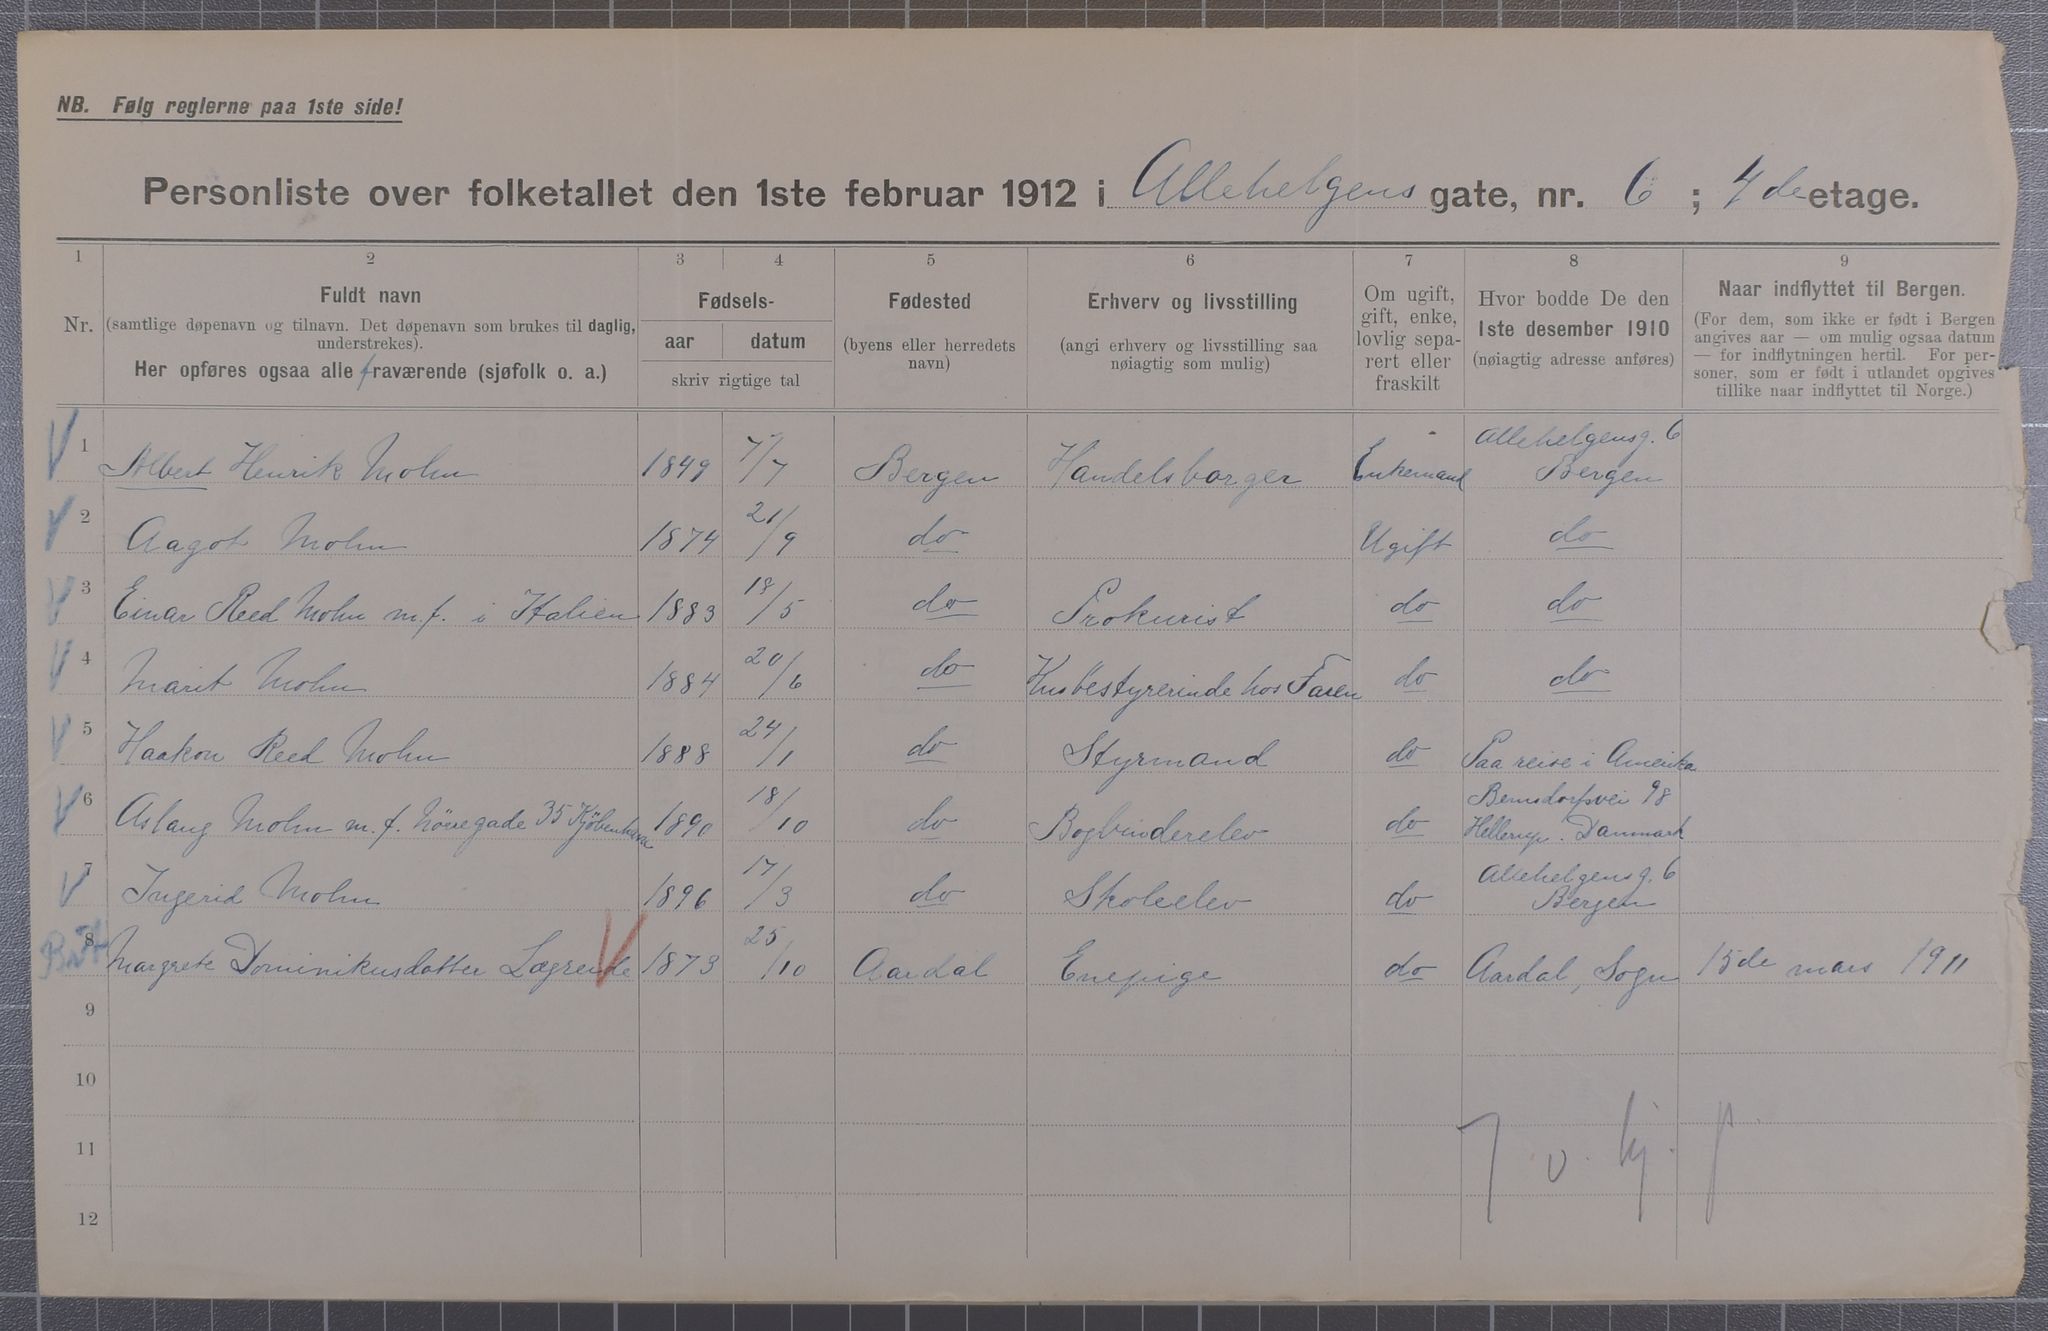 NB. Følg reglerne paa 1ste side!
Personliste over folketallet den 1ste februar 1912 i Allehelgens gate, nr. 6 ; 4de etage.
1 2 3 4 5 6 7 8 9
Nr.
Fuldt navn
(samtlige døpenavn og tilnavn. Det døpenavn som brukes til daglig,
understrekes).
Her opføres ogsaa alle fraværende (sjøfolk o. a.)
Fødsels-
aar datum
skriv rigtige tal
Fødested
(byens eller herredets
navn)
Erhverv og livsstilling
(angi erhverv og livsstilling saa
nøiagtig som mulig)
Om ugift,
gift, enke,
lovlig sepa-
rert eller
fraskilt
Hvor bodde De den
1ste desember 1910
(nøiagtig adresse anføres)
Naar indflyttet til Bergen.
(For dem, som ikke er født i Bergen
angives aar — om mulig ogsaa datum
— for indflytningen hertil. For per-
soner, som er født i utlandet opgives
tillike naar indflyttet til Norge.)
V 1 Albert Henrik Mohn 1849 7/7 Bergen Handelsborger Enkemand Allehelgensg. 6
Bergen
V 2 Aagot Mohn 1874 21/9 do Ugift do
V 3 Einar Reed Mohn m.f. i Italien 1883 18/5 do Prokurist do do
V 4 Marit Mohn 1884 20/6 do Husbestyrerinde hos Faren do do
V 5 Haakon Reed Mohn 1888 24/1 do Styrmand do Paa reise i Amerika
V 6 Aslaug Mohn m.f. 35 Kjøbenhavn 1890 18/10 do Bogbinderelev do Bernsdorfsvei 98
Hellerup. Danmark
V 7 Ingerid Mohn 1896 17/3 do Skoleelev do Allehelgensg. 6
Bergen
8 Margrete Dominikusdatter Lægreide V 1873 25/10 Aardal Enepige do Aardal, Sogn 15de mars 1911
9
10
11
12